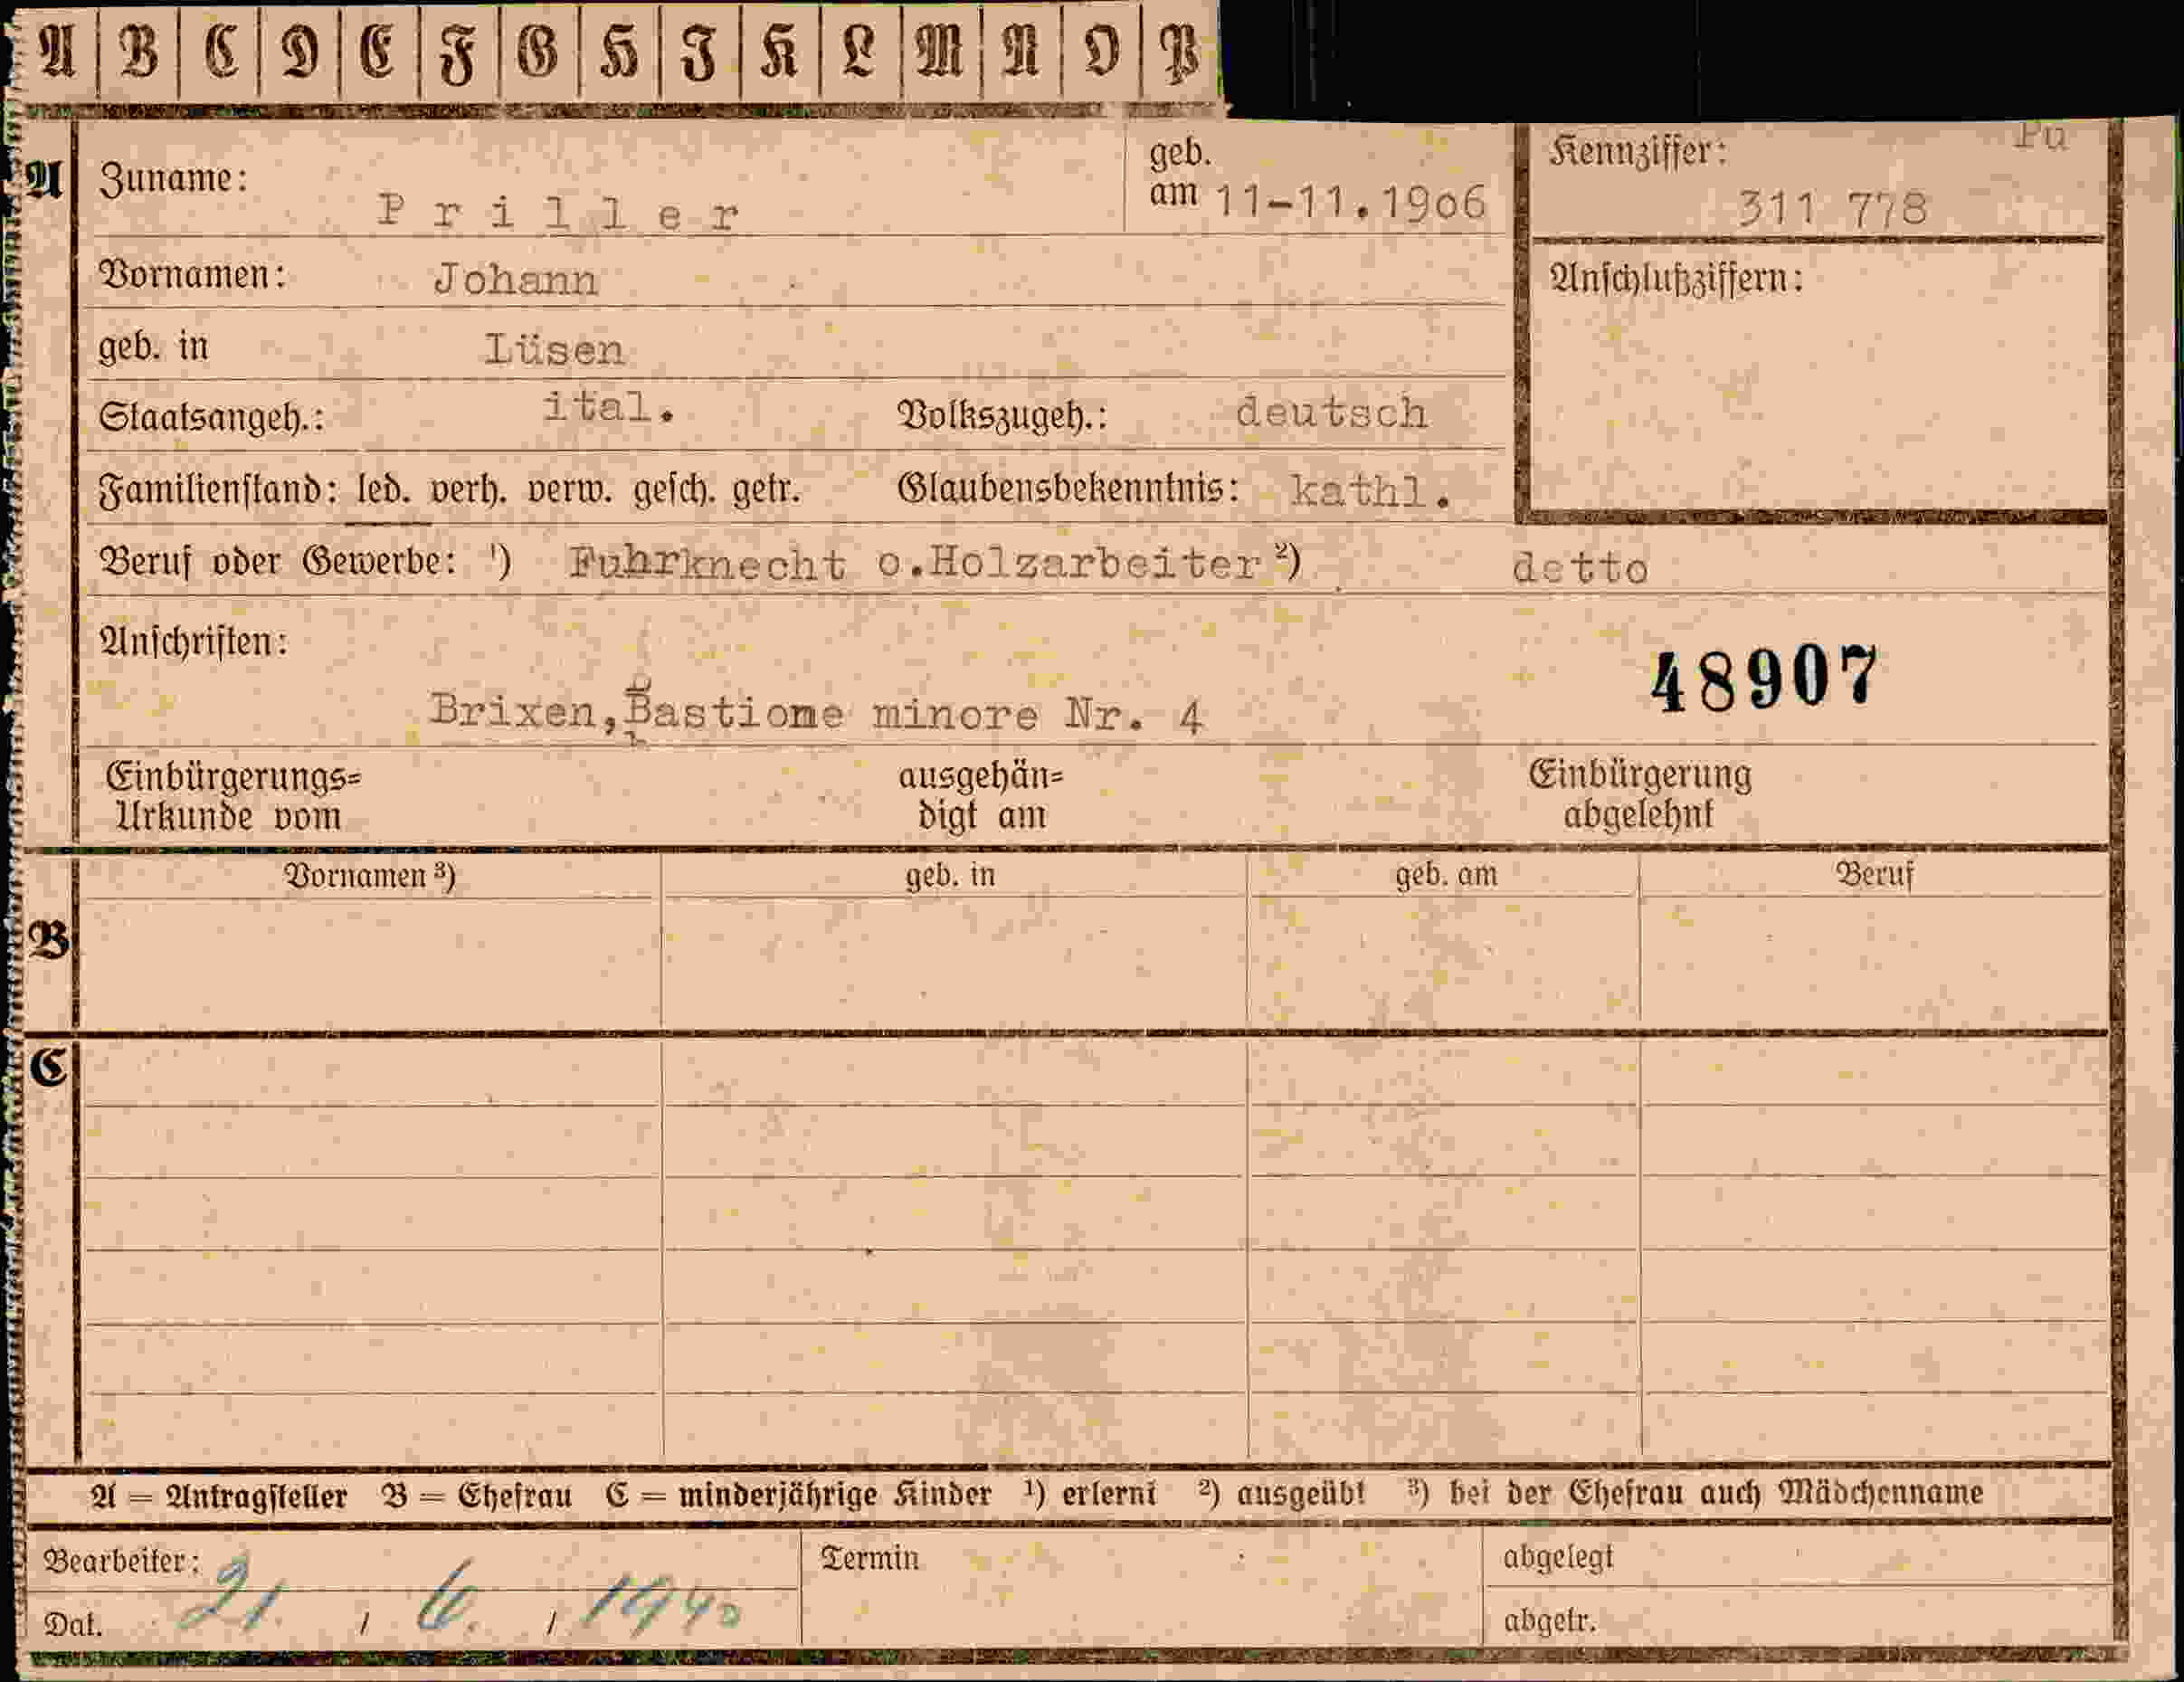 A B C D E F G H I K L M N O P
Pu
A Zuname: Priller geb. am 11-11.1906 Kennziffer: 311 778
Vornamen: Johann Anschlußziffern:
geb. in Lüsen
Staatsangeh.: ital. Volkszugeh.: deutsch
Familienstand: led. verh. verw. gesch. getr. Glaubensbekenntnis: kathl.
Beruf oder Gewerbe: ¹) Fuhrknecht o.Holzarbeiter ²) detto
Anschriften:
48907
Brixen,Bastione minore Nr. 4
Einbürgerungs= ausgehän= Einbürgerung
Urkunde vom digt am abgelehnt
Vornamen ³) geb. in geb. am Beruf
B
C
A = Antragsteller B = Ehefrau C = minderjährige Kinder ¹) erlernt ²) ausgeübt ³) bei der Ehefrau auch Mädchenname
Bearbeiter: Termin abgelegt
Dat. 21. / 6. / 1940 abgetr.